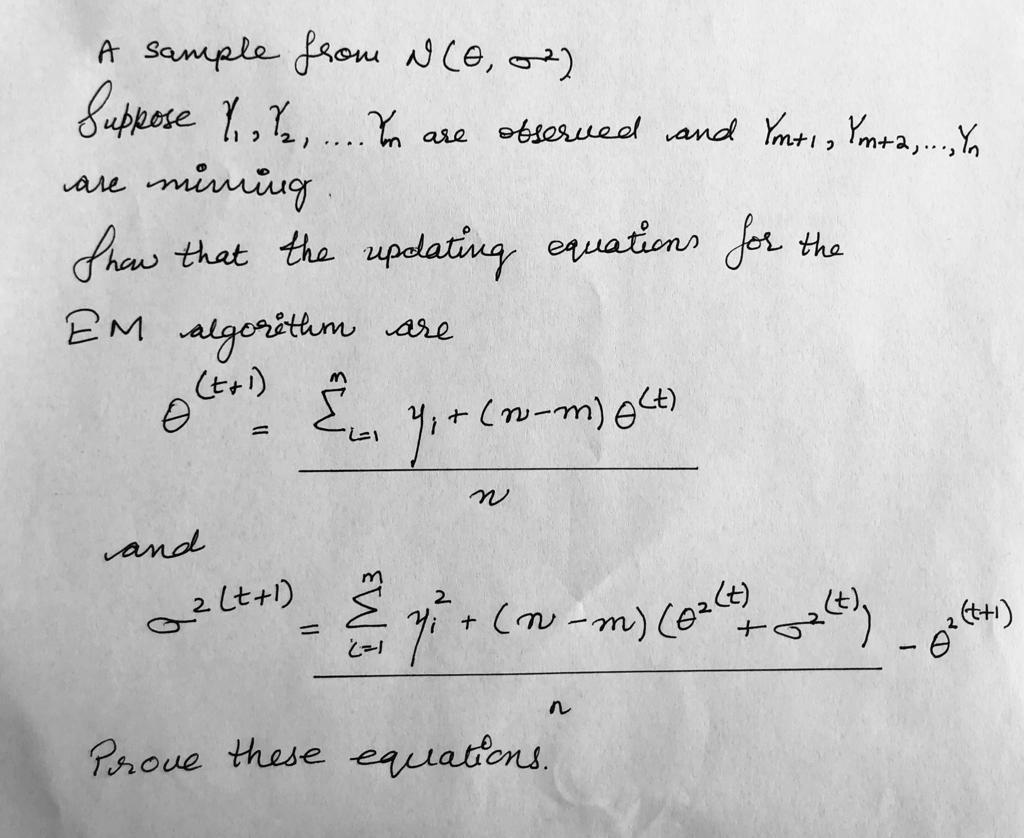 A sample from N(θ, σ²)
Suppose Y₁, Y₂, .... Yₘ are observed and Yₘ₊₁, Yₘ₊₂, ..., Yₙ
are missing.
Show that the updating equations for the
EM algorithm are
θ^(t+1) = (∑ᵢ₌₁^m yᵢ + (n-m) θ^(t)) / n
and
σ^2(t+1) = (∑ᵢ₌₁^m yᵢ² + (n-m)(θ^2(t) + σ^2(t))) / n - θ^2(t+1)
Prove these equations.